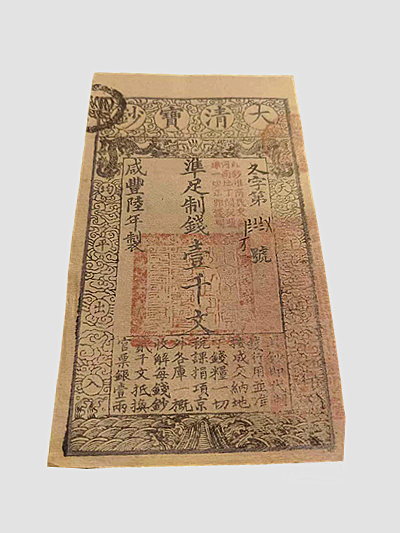 大清寶鈔
久字第
號
準足制錢壹千文
咸豐陸年製
天
均平出入
此鈔即代制
錢行用並准
按成交納地
丁錢糧一切
稅課捐項京
外各庫一概
收解每錢鈔
貳千文抵換
官票銀壹兩